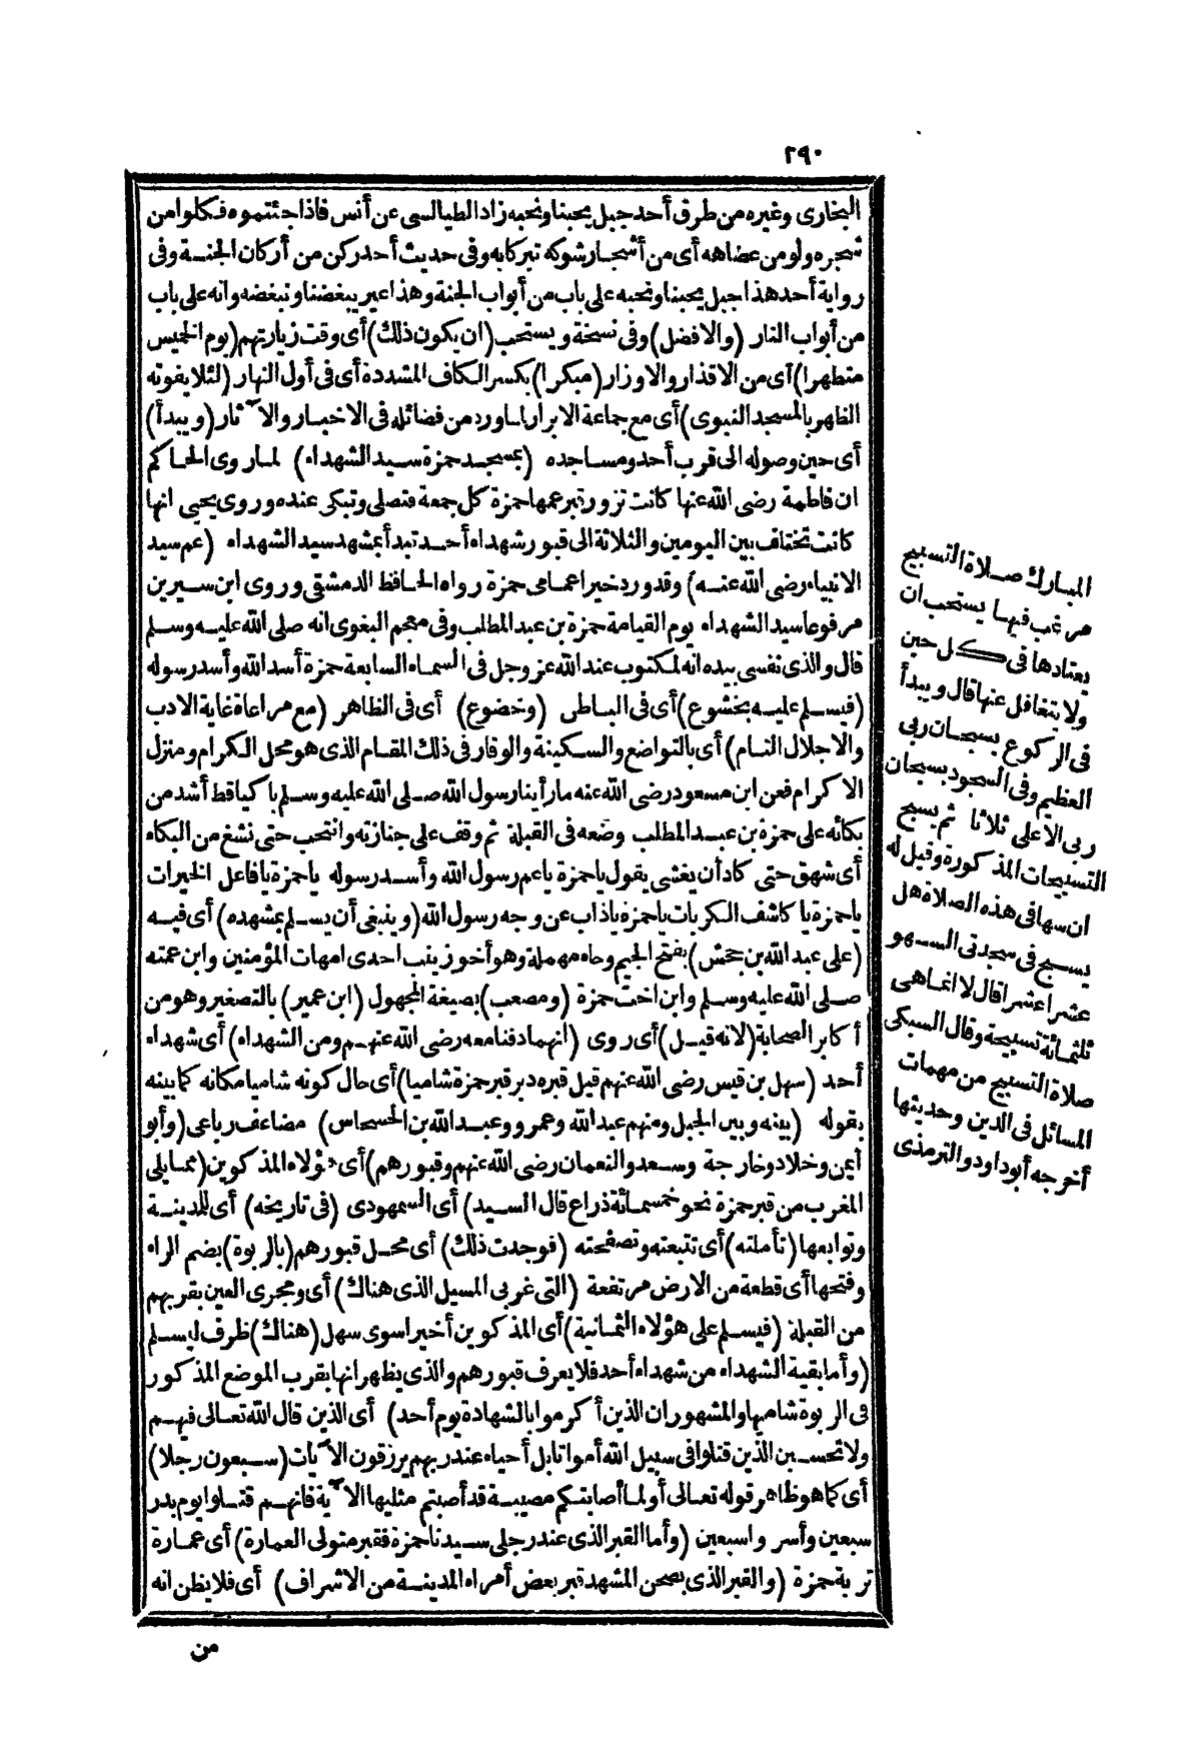 ٢٩٠
البخارى وغيره من طرق أحد جبل يحبنا ونحبه زاد الطيالسى عن أنس فاذا جئتموه فكلوا من
شجره ولو من عضاهه أى من أشجار شوكه تبركا به وفى حديث أحد ركن من أركان الجنة وفى
رواية أحد هذا جبل يحبنا ونحبه على باب من أبواب الجنة وهذا عير يبغضنا ونبغضه وانه على باب
من أبواب النار (والافضل) وفى نسخة ويستحب (ان يكون ذلك) أى وقت زيارتهم (يوم الخميس
متطهرا) أى من الاقذار والاوزار (مبكرا) بكسر الكاف المشددة أى فى أول النهار (لئلا يفوته
الظهر بالمسجد النبوى) أى مع جماعة الابرار لما ورد من فضائله فى الاخبار والآثار (ويبدأ)
أى حين وصوله الى قرب أحد ومساجده (بمسجد حمزة سيد الشهداء) لما روى الحاكم
ان فاطمة رضى الله عنها كانت تزور قبر عمها حمزة كل جمعة فتصلى وتبكى عنده وروى يحيى انها
كانت تختلف بين اليومين والثلاثة الى قبور شهداء أحد تبدأ بمشهد سيد الشهداء (عم سيد
الانبياء رضى الله عنه) وقد ورد خير اعمامى حمزة رواه الحافظ الدمشقى وروى ابن سيرين
مرفوعا سيد الشهداء يوم القيامة حمزة بن عبد المطلب وفى معجم البغوى انه صلى الله عليه وسلم
قال والذى نفسى بيده انه لمكتوب عند الله عز وجل فى السماء السابعة حمزة أسد الله وأسد رسوله
(فيسلم عليه بخشوع) أى فى الباطن (وخضوع) أى فى الظاهر (مع مراعاة غاية الادب
والاجلال التام) أى بالتواضع والسكينة والوقار فى ذلك المقام الذى هو محل الكرام ومنزل
الاكرام فعن ابن مسعود رضى الله عنه ما رأينا رسول الله صلى الله عليه وسلم باكيا قط أشد من
بكائه على حمزة بن عبد المطلب وضعه فى القبلة ثم وقف على جنازته وانتحب حتى نشغ من البكاء
أى شهق حتى كاد أن يغشى يقول يا حمزة يا عم رسول الله وأسد رسوله يا حمزة يا فاعل الخيرات
يا حمزة يا كاشف الكربات يا حمزة يا ذاب عن وجه رسول الله (وينبغى أن يسلم بمشهده) أى فيه
(على عبد الله بن جحش) بفتح الجيم وحاء مهملة وهو أخو زينب احدى امهات المؤمنين وابن عمته
صلى الله عليه وسلم وابن اخت حمزة (ومصعب) بصيغة المجهول (ابن عمير) بالتصغير وهو من
أكابر الصحابة (لانه قيل) أى روى (انهما دفنا معه رضى الله عنهم ومن الشهداء) أى شهداء
أحد (سهل بن قيس رضى الله عنهم قيل قبره دبر قبر حمزة شاميا) أى حال كونه شاميا مكانه كما بينه
بقوله (بينه وبين الجبل ومنهم عبد الله وعمرو وعبد الله بن الحسحاس) مضاعف رباعى (وأبو
أيمن وخلاد وخارجة وسعد والنعمان رضى الله عنهم وقبورهم) أى هؤلاء المذكورين (مما يلى
المغرب من قبر حمزة نحو خمسمائة ذراع قال السيد) أى السمهودى (فى تاريخه) أى للمدينة
وتوابعها (تأملته) أى تتبعته وتصفحته (فوجدت ذلك) أى محل قبورهم (بالربوة) بضم الراء
وفتحها أى قطعة من الارض مرتفعة (التى غربى المسيل الذى هناك) أى ومجرى العين بقربهم
من القبلة (فيسلم على هؤلاء الثمانية) أى المذكورين أخيرا سوى سهل (هناك) ظرف ليسلم
(وأما بقية الشهداء من شهداء أحد فلا يعرف قبورهم والذى يظهر انها بقرب الموضع المذكور
فى الربوة شاميها والمشهور ان الذين أكرموا بالشهادة يوم أحد) أى الذين قال الله تعالى فيهم
ولا تحسبن الذين قتلوا فى سبيل الله أمواتا بل أحياء عند ربهم يرزقون الآيات (سبعون رجلا)
أى كما هو ظاهر قوله تعالى أولما أصابتكم مصيبة قد أصبتم مثليها الآية فانهم قتلوا يوم بدر
سبعين وأسروا سبعين (وأما القبر الذى عند رجلى سيدنا حمزة فقبر متولى العمارة) أى عمارة
تربة حمزة (والقبر الذى بصحن المشهد قبر بعض أمراء المدينة من الاشراف) أى فلا يظن انه
من
المبارك صلاة التسبيح
مرغب فيها يستحب ان
يعتادها فى كل حين
ولا يتغافل عنها قال ويبدأ
فى الركوع بسبحان ربى
العظيم وفى السجود بسبحان
ربى الأعلى ثلاثا ثم يسبح
التسبيحات المذكورة وقيل له
ان سها فى هذه الصلاة هل
يسبح فى سجدتى السهو
عشرا عشرا قال لا انما هى
ثلثمائة تسبيحة وقال السبكى
صلاة التسبيح من مهمات
المسائل فى الدين وحديثها
أخرجه أبو داود والترمذى